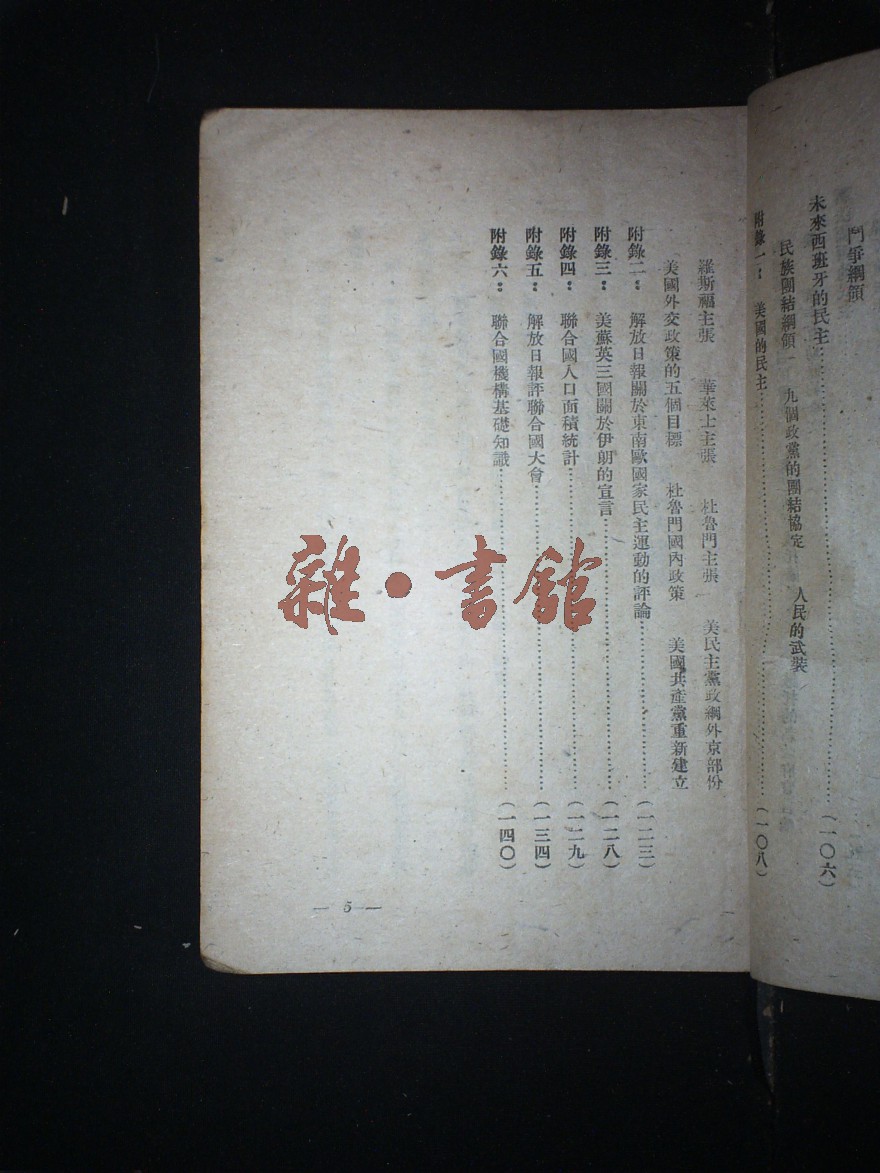 鬥爭綱領
未來西班牙的民主……………………(一〇六)
民族團結綱領 九個政黨的團結協定 人民的武裝
附錄一： 美國的民主……………………(一〇八)
羅斯福主張 華萊士主張 杜魯門主張 美民主黨政綱外京部份
美國外交政策的五個目標 杜魯門國內政策 美國共產黨重新建立
附錄二： 解放日報關於東南歐國家民主運動的評論……………………(一二三)
附錄三： 美蘇英三國關於伊朗的宣言……………………(一二八)
附錄四： 聯合國人口面積統計……………………(一二九)
附錄五： 解放日報評聯合國大會……………………(一三四)
附錄六： 聯合國機構基礎知識……………………(一四〇)
— 5 —
雜·書館